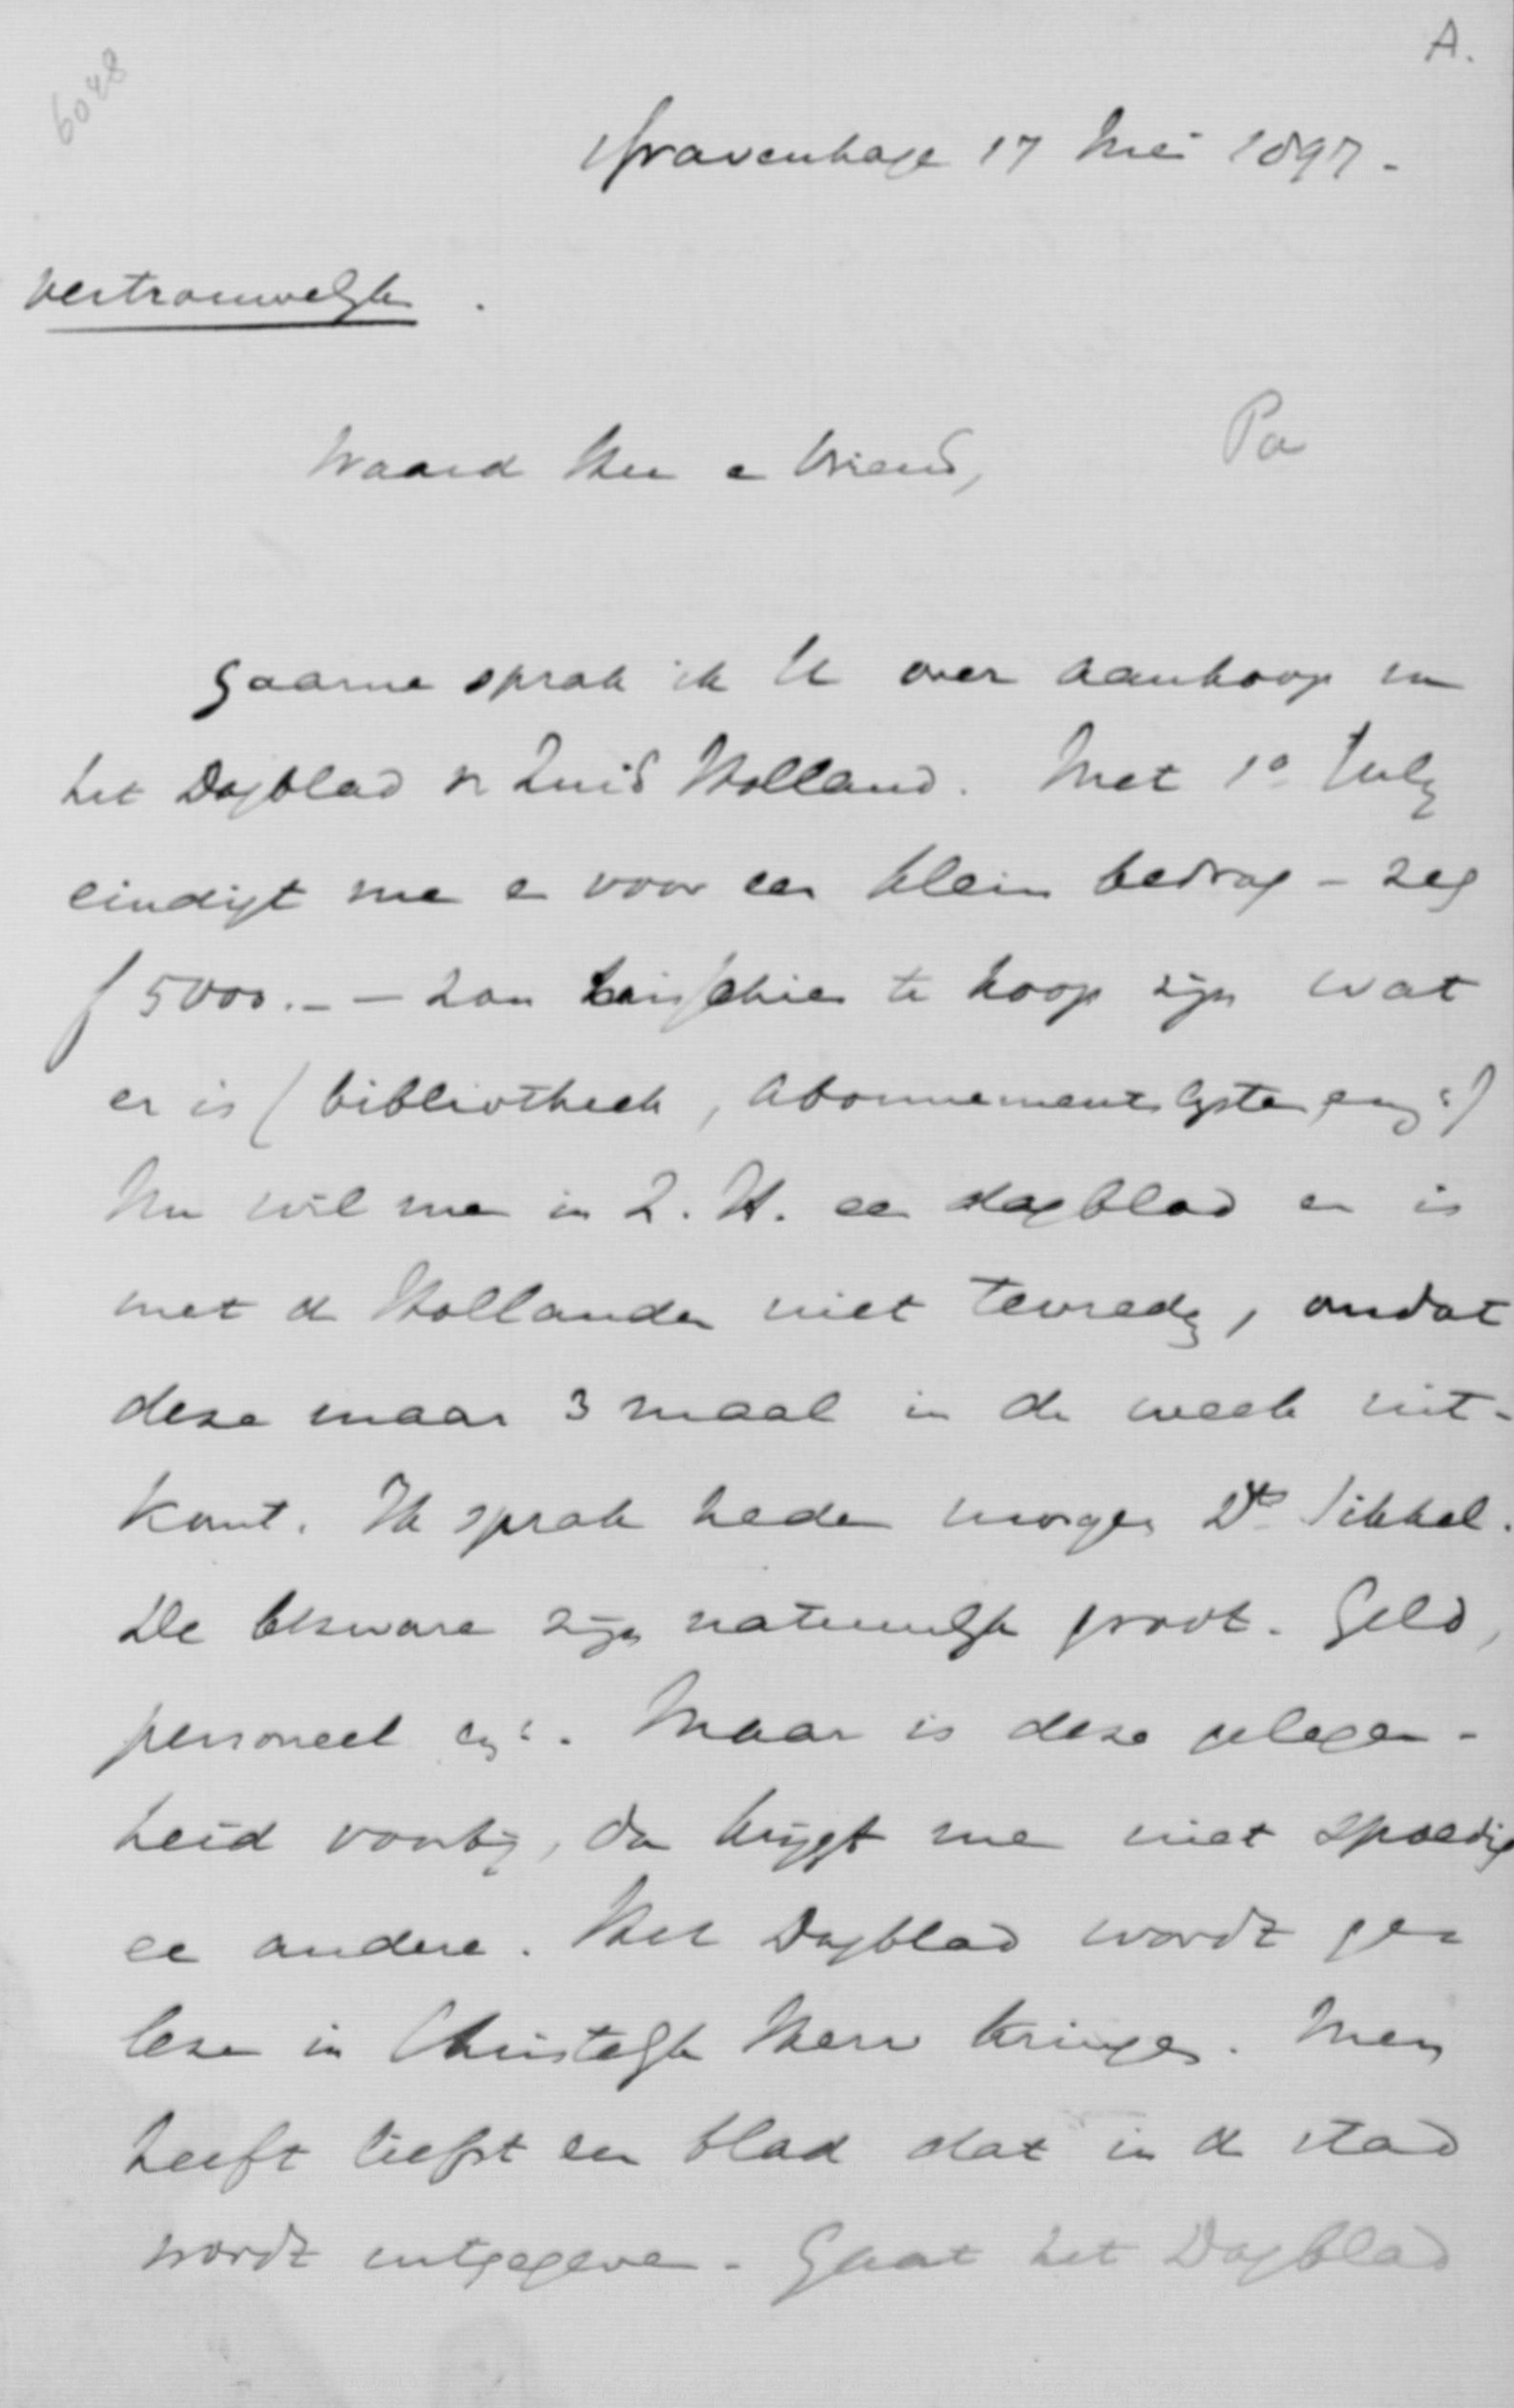 A.
6048
'sGravenhage 17 Mei 1897.
Vertrouwelijk.
Waarde Heer en Vriend,
Pa
Gaarne sprak ik U over aankoop van
het Dagblad v Zuid Holland. Met 1o July
eindigt men en voor een klein bedrag - zeg
f 5000.- - zou misschien te koop zijn wat
er is (bibliotheek, abonnementslijsten, enz:)
Nu wil men in Z. H. een dagblad en is
met de Hollander niet tevreden, omdat
deze maar 3 maal in de week uit-
komt. Ik sprak heden morgen Ds Sikkel.
De bezwaren zijn natuurlijk groot. Geld,
personeel enz:. Maar is deze gelegen-
heid voorbij, dan krijgt men niet spoedig
een andere. Het Dagblad wordt ge-
lezen in Christelijk Herv kringen. Men
heeft liefst een blad dat in de stad
wordt uitgegeven - Gaat het Dagblad